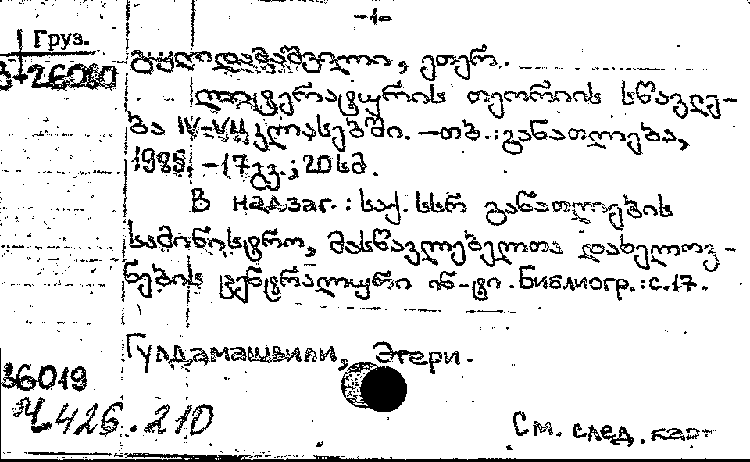 -1-
Груз.
გულდამაშვილი, ეთერ.
ლიტერატურის თეორიის სწავლე-
ბა IV-VII კლასებში. -თბ.: განათლება,
1985. -17 გვ.; 20 სმ.
В надзаг.: საქ. სსრ განათლების
სამინისტრო, მასწავლებელთა დახელოვ-
ნების ცენტრალური ინ-ტი. Библиогр.: с.17.
Гулдамашвили, Этери.
36019
426.210
См. след. карт